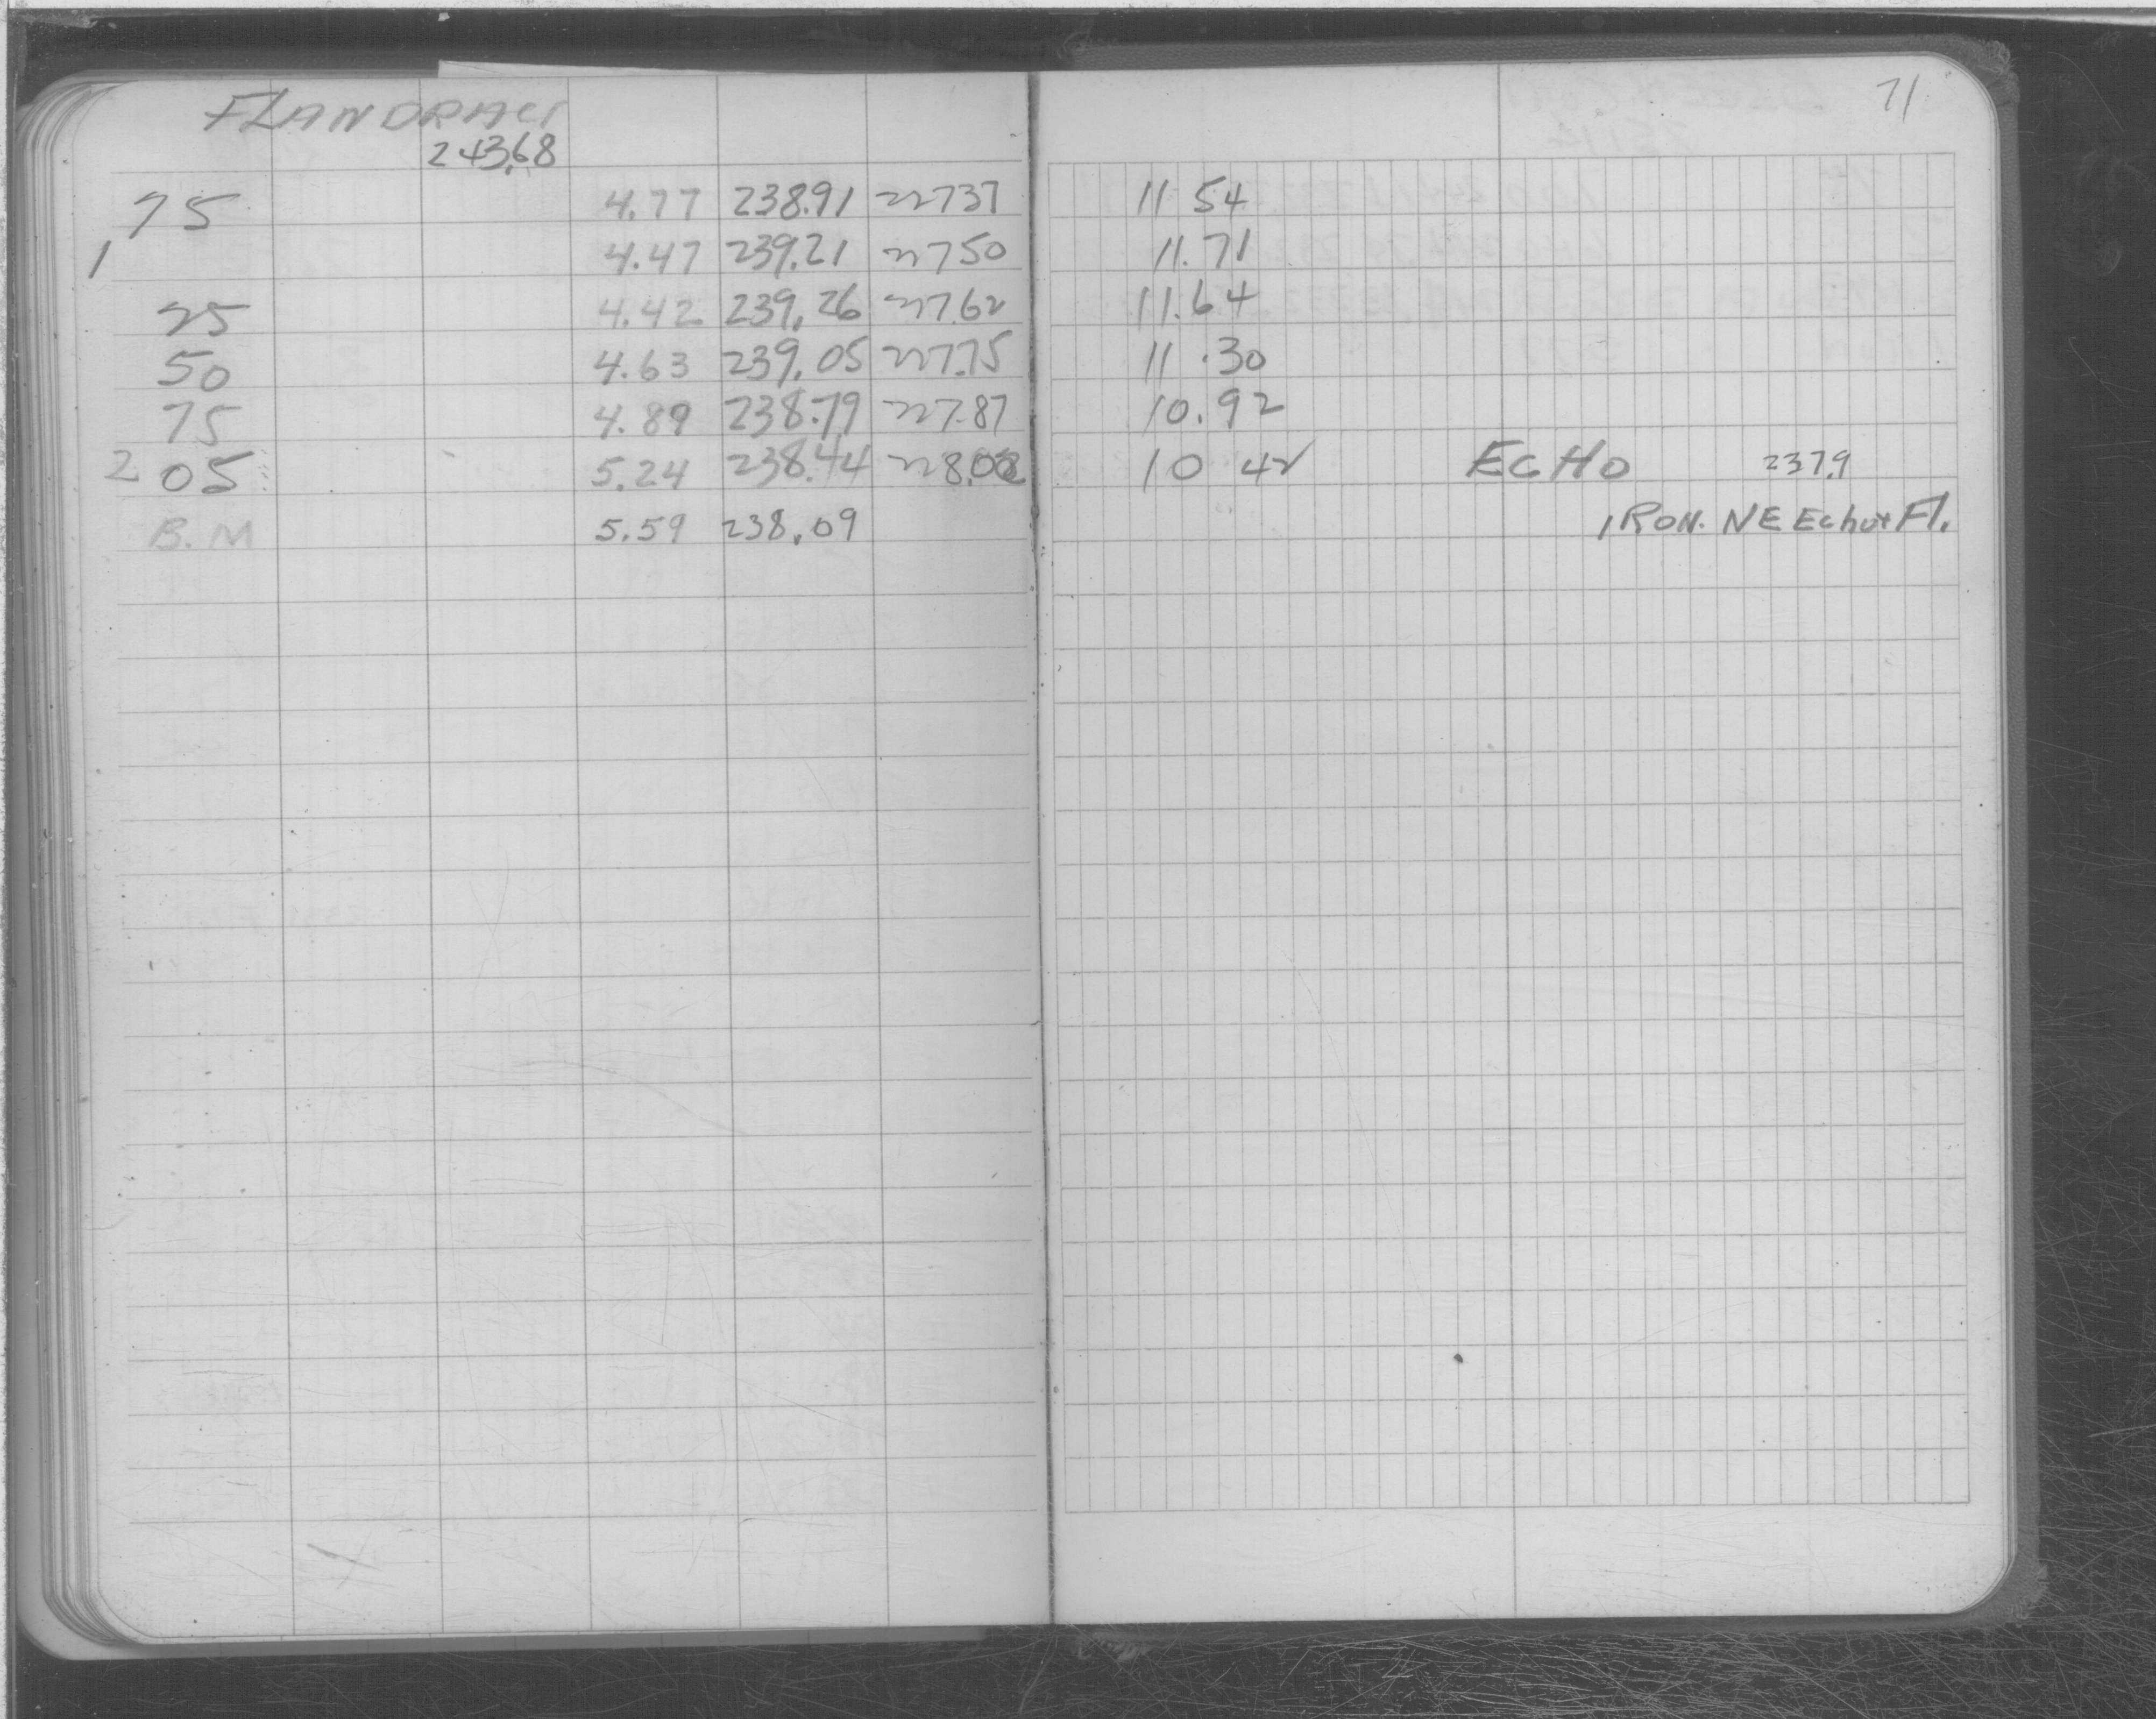 FLANDRAU 71
243.68
75 4.77 238.91 227.37 11 54
1 4.47 239.21 227.50 11.71
25 4.42 239.26 227.62 11.64
50 4.63 239.05 227.75 11.30
75 4.89 238.79 227.87 10.92
2 05 5.24 238.44 228.02 10 42 ECHO 237.9
B.M 5.59 238.09 IRON. NE Echo + Fl.